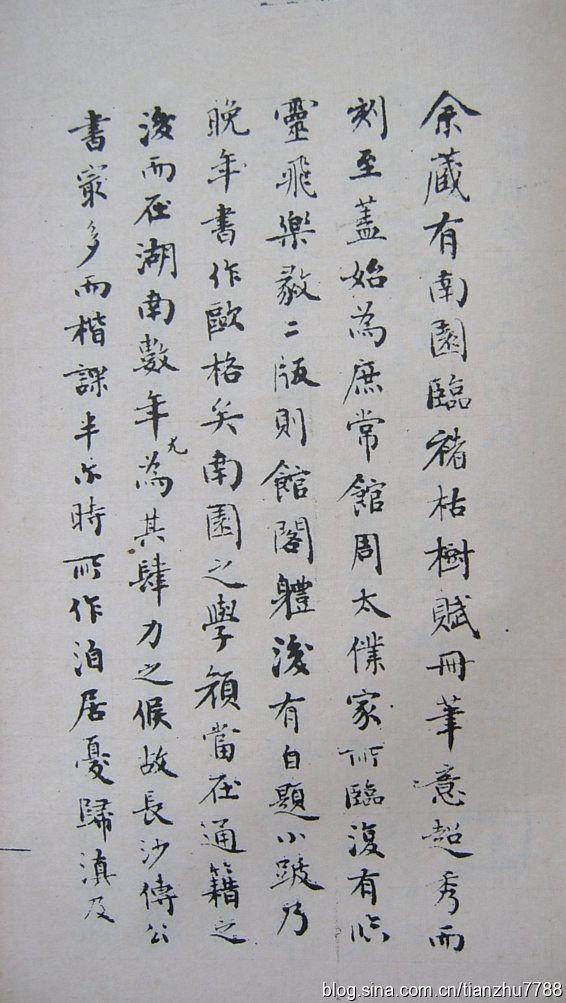 余藏有南園臨褚枯樹賦冊筆意超秀而
刻至蓋始為庶常館周太僕家所臨復有臨
靈飛樂毅二版則館閣體後有自題小跋乃
晚年書作歐格矣南園之學顏當在通籍之
後而在湖南數年尤為其肆力之候故長沙傳公
書最多而楷課半尔時所作洎居憂歸滇及
blog.sina.com.cn/tianzhu7788